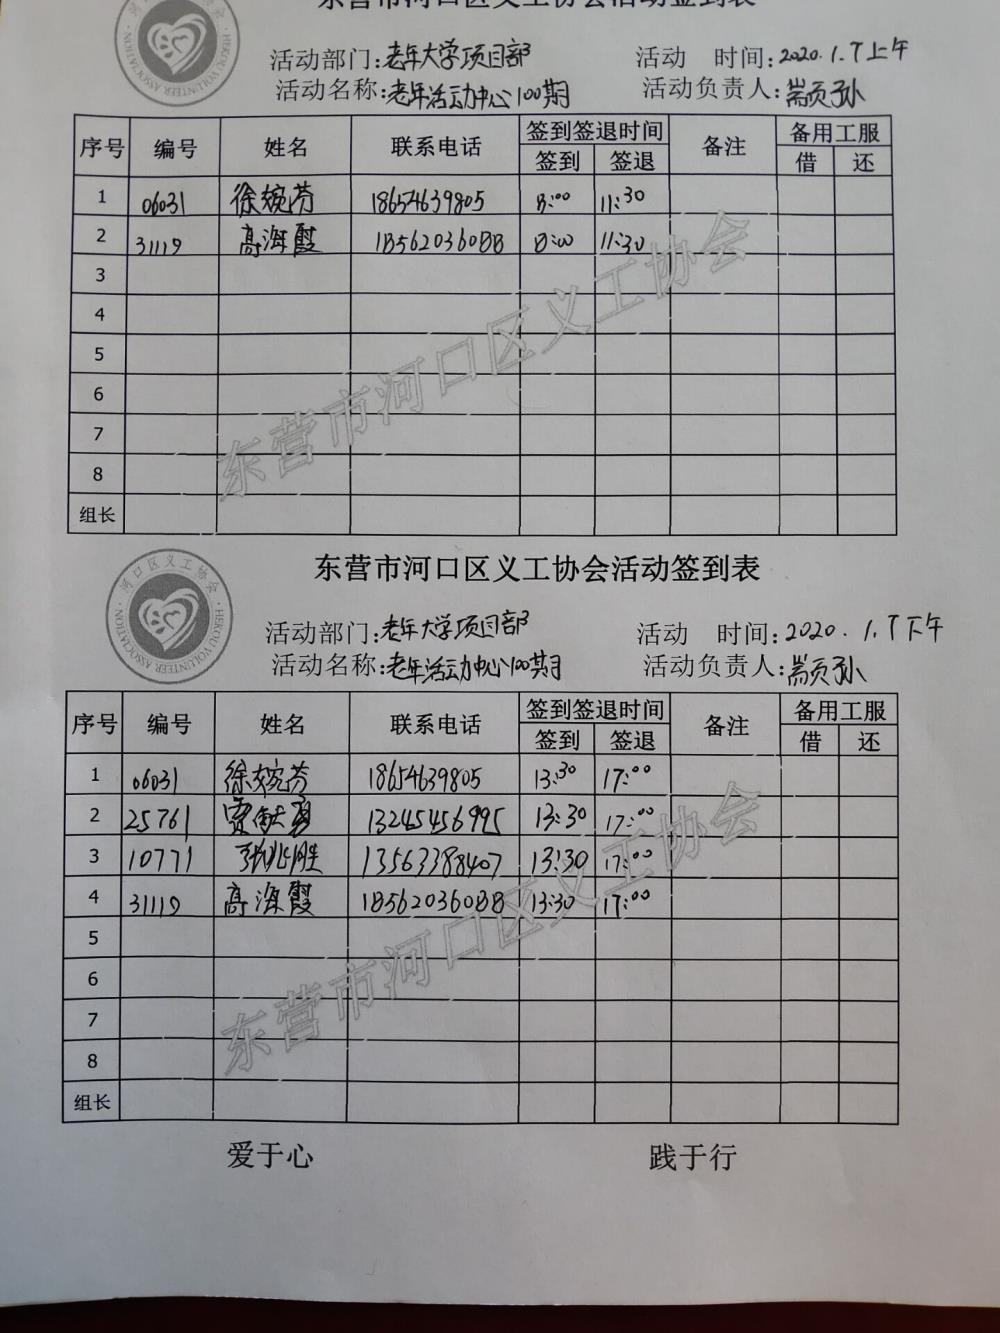 东营市河口区义工协会活动签到表
活动部门:老年大学项目部 活动 时间:2020.1.7上午
活动名称:老年活动中心100期 活动负责人:
序号 编号 姓名 联系电话 签到签退时间 备注 备用工服
签到 签退 借 还
1 06031 徐婉芬 18654639805 8:00 11:30
2 31119 高海霞 18562036088 8:00 11:30
3
4
5
6
7
8
组长
东营市河口区义工协会
河口区义工协会
HEKOU VOLUNTEER ASSOCIATION
东营市河口区义工协会活动签到表
活动部门:老年大学项目部 活动 时间:2020.1.7下午
活动名称:老年活动中心100期 活动负责人:
序号 编号 姓名 联系电话 签到签退时间 备注 备用工服
签到 签退 借 还
1 06031 徐婉芬 18654639805 13:30 17:00
2 25761 13245456995 13:30 17:00
3 10771 张兆胜 13563388407 13:30 17:00
4 31119 高海霞 18562036088 13:30 17:00
5
6
7
8
组长
东营市河口区义工协会
爱于心 践于行